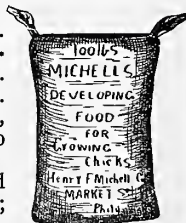 100 lbs
MICHELLS
DEVELOPING
FOOD
FOR
GROWING
chicks
Henry F Michell Co
MARKET St
Phila